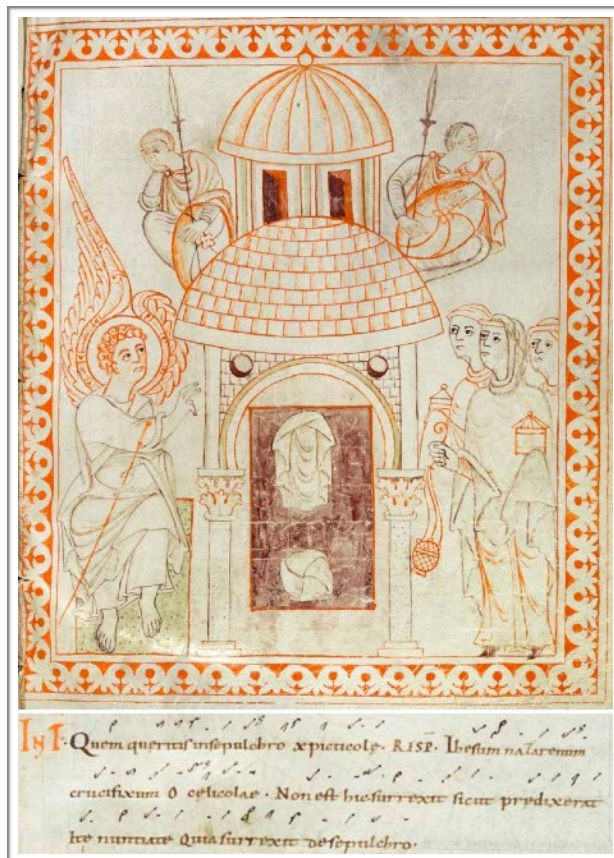 INT. Quem queritis insepulchro xpicticolę. RESP. Ihesum nazarenum
crucifixum O celicolae. Non est hic surrexit sicut predixerat
Ite nuntiate Quia surrexit desepulchro.